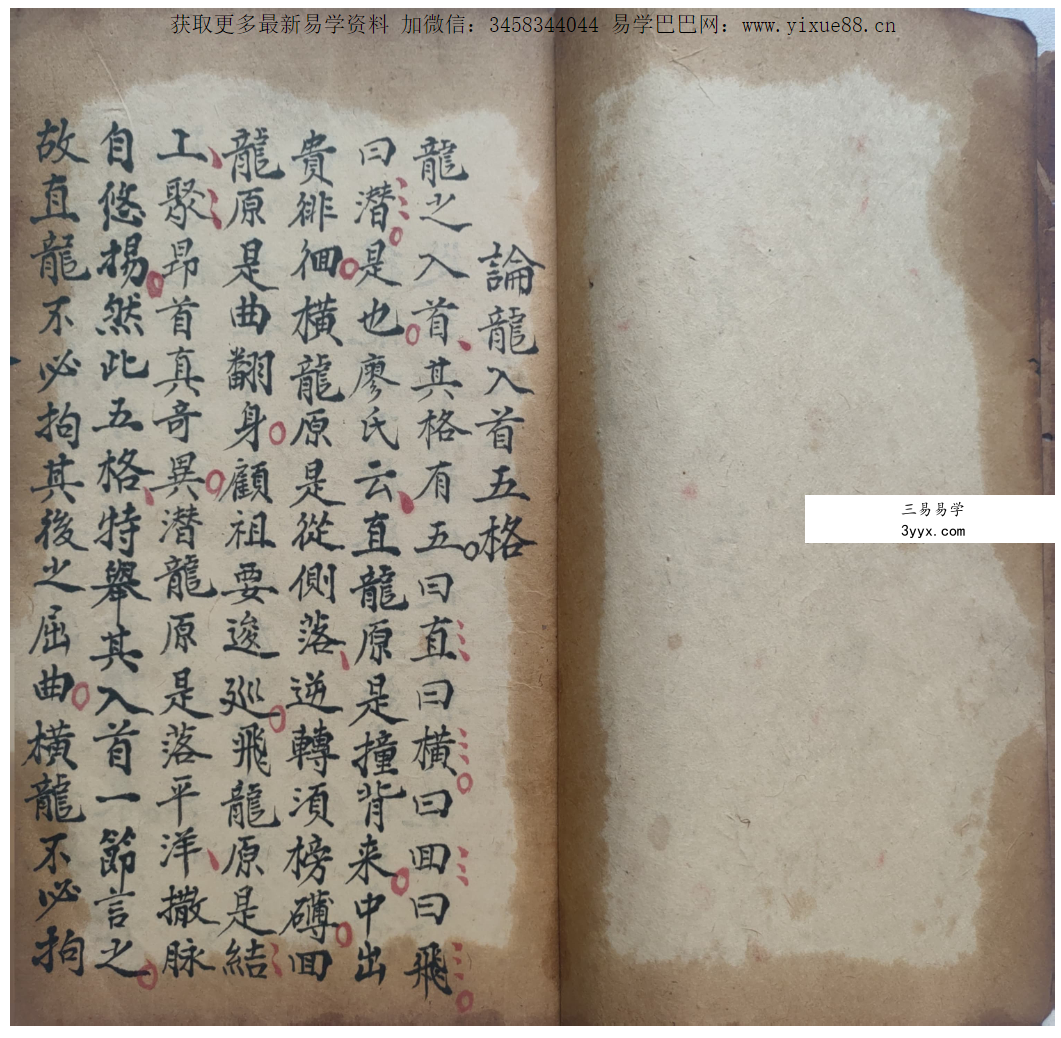 获取更多最新易学资料 加微信：3458344044 易学巴巴网：www.yixue88.cn
三易易学
3yyx.com
論龍入首五格
龍之入首其格有五曰直曰橫曰回曰飛
曰潛是也廖氏云直龍原是撞背来中出
貴徘徊橫龍原是從側落逆轉須榜礴回
龍原是曲翻身顧祖要逡巡飛龍原是結
工聚昂首真奇異潛龍原是落平洋撒脉
自悠揚然此五格特舉其入首一節言之
故直龍不必拘其後之屈曲橫龍不必拘